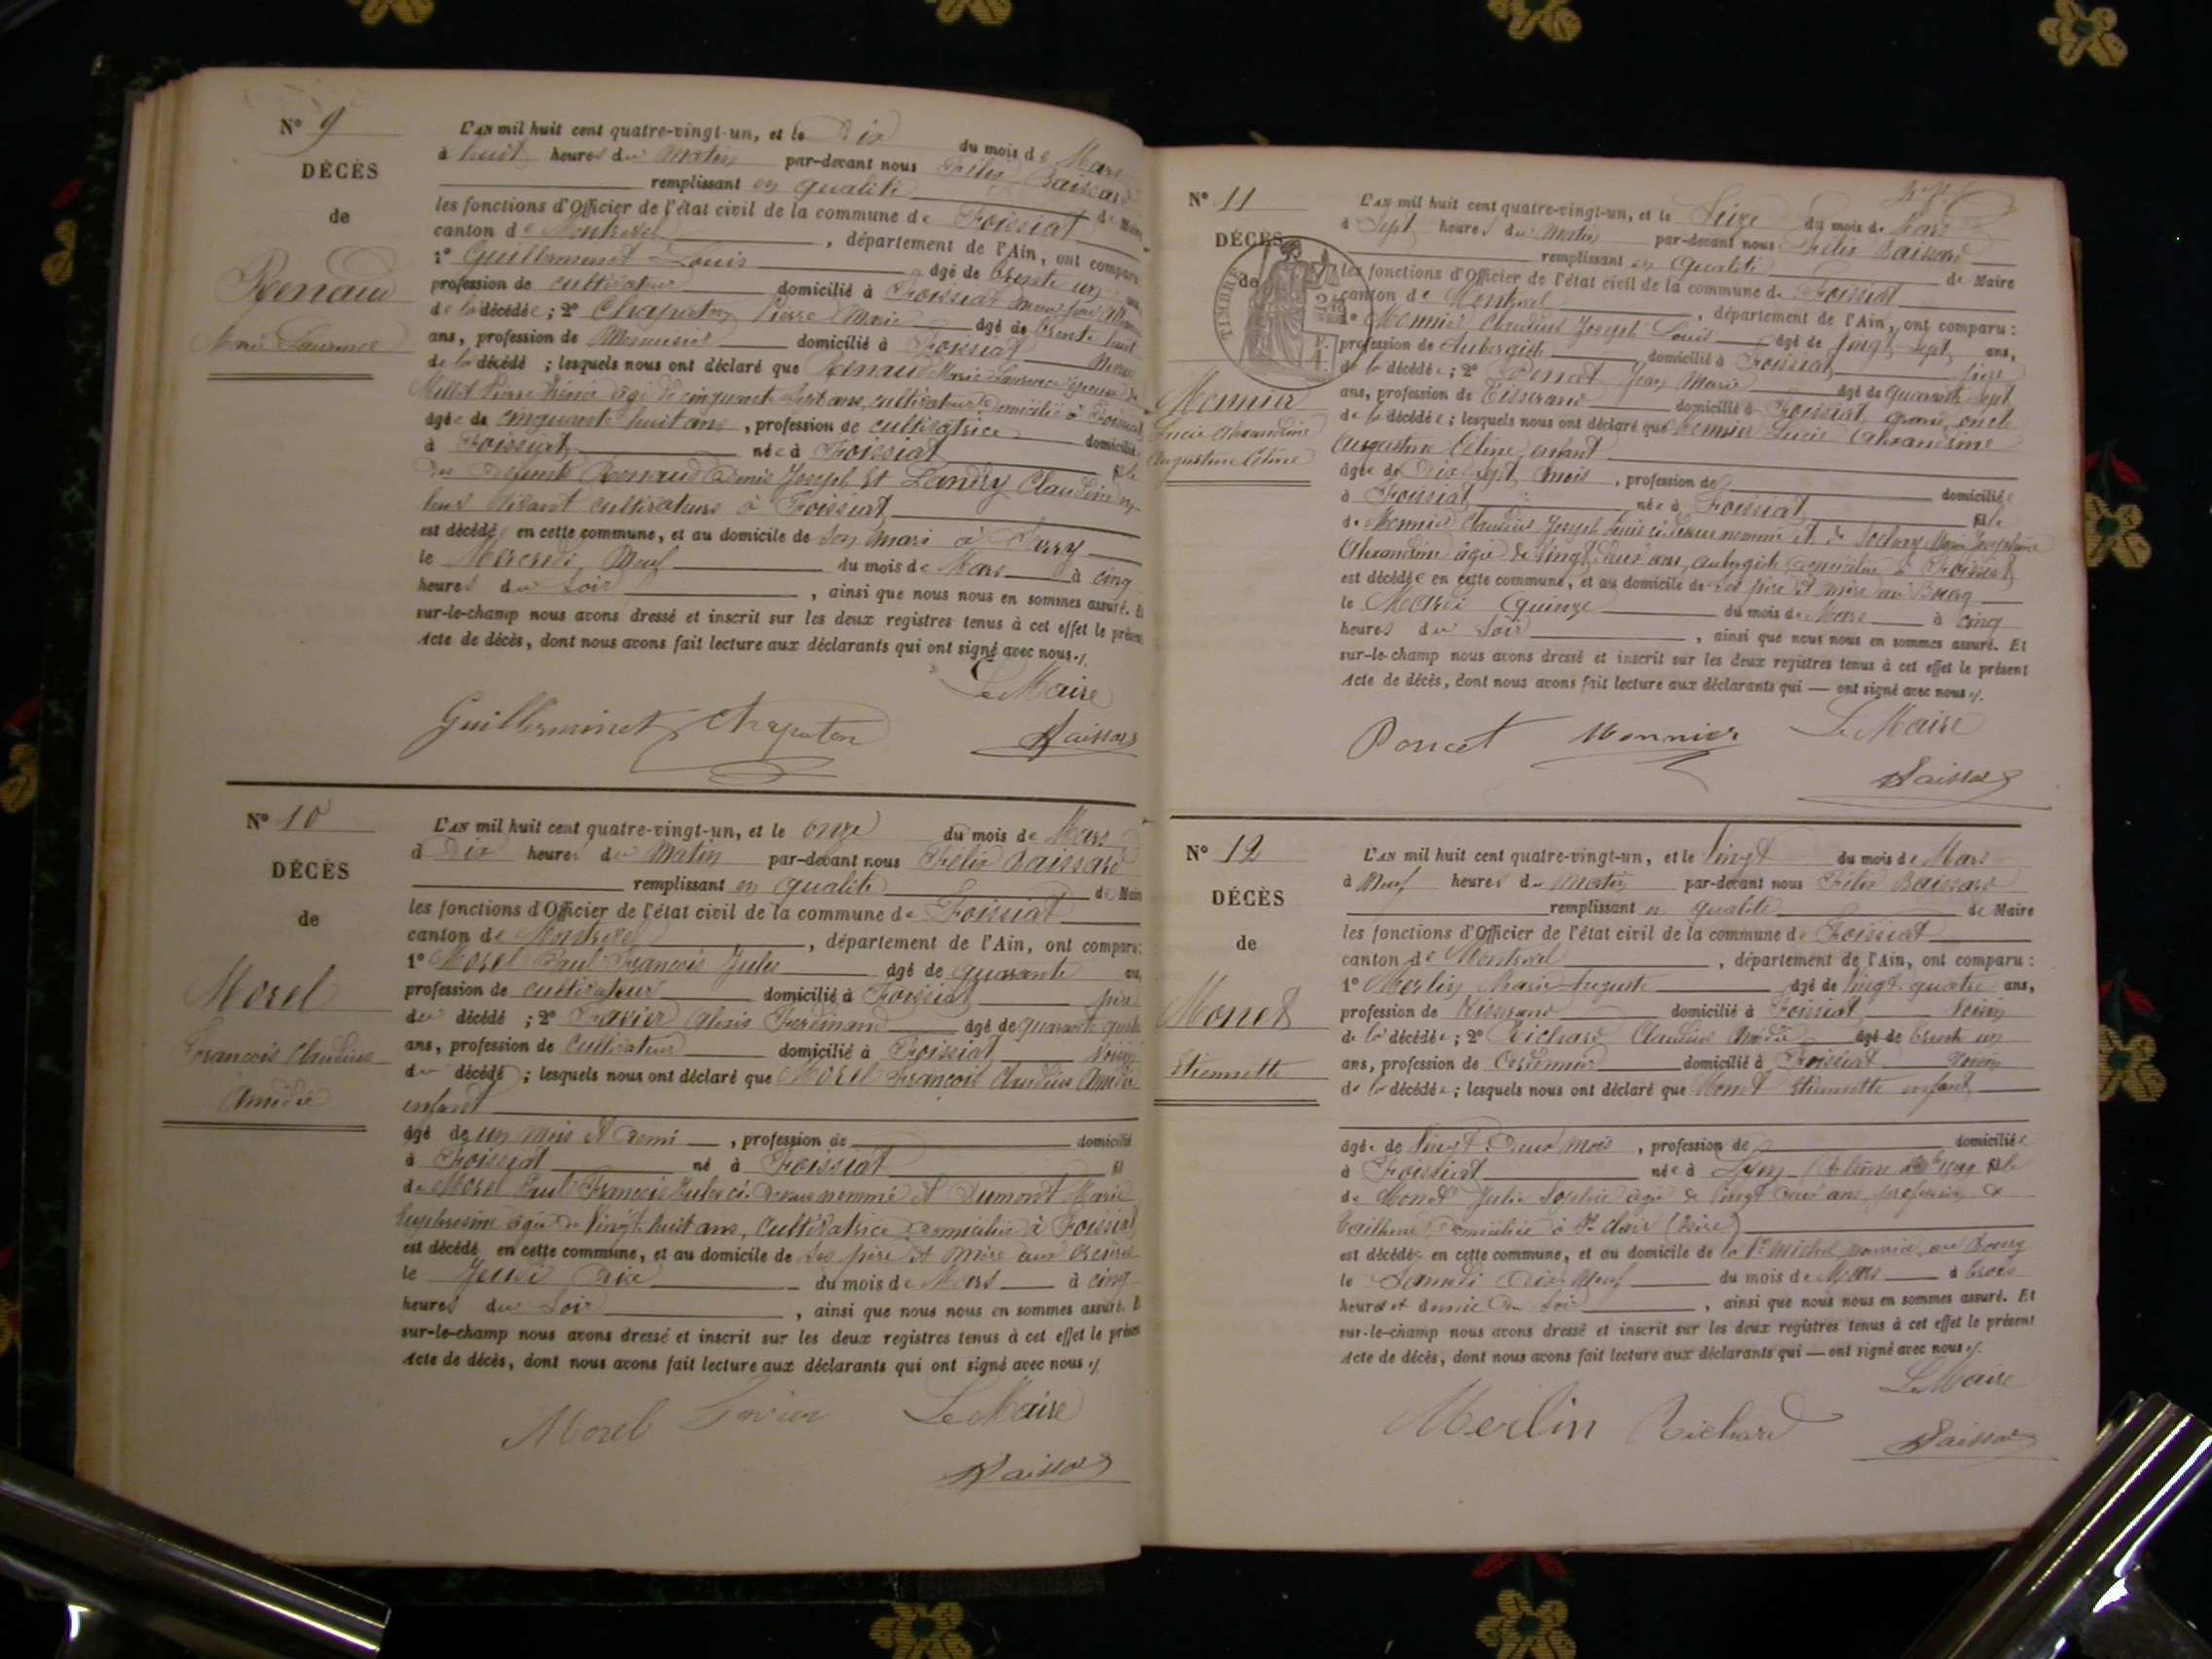 N° 9
DÉCÈS
de
Renaud
Marie Laurence
L'AN mil huit cent quatre-vingt-un, et le Dix du mois de Mars
à huit heures du Matin par-devant nous Félix Baissard
remplissant en qualité de Maire
les fonctions d'Officier de l'état civil de la commune de Foissiat
canton de Montrevel, département de l'Ain, ont comparu
1° Guillerminet Louis âgé de trente un ans,
profession de cultivateur domicilié à Foissiat
de la décédée; 2° Chapaton Pierre Marie âgé de trente huit
ans, profession de Menuisier domicilié à Foissiat
de la décédé; lesquels nous ont déclaré que Renaud Marie Laurence épouse de
Millet Pierre âgé de cinquante sept ans, cultivateur domicilié à Foissiat
âgée de cinquante huit ans, profession de cultivatrice domiciliée
à Foissiat née à Foissiat fille
des défunts Renaud Denis Joseph et Landry Claudine
leur vivant cultivateurs à Foissiat
est décédée en cette commune, et au domicile de son mari à
le Mercredi Neuf du mois de Mars à cinq
heures du soir, ainsi que nous nous en sommes assuré. Et
sur-le-champ nous avons dressé et inscrit sur les deux registres tenus à cet effet le présent
Acte de décès, dont nous avons fait lecture aux déclarants qui ont signé avec nous./.
Le Maire
Guillerminet Chapaton Baissard
N° 10
DÉCÈS
de
Morel
François Claudius
Amédée
L'AN mil huit cent quatre-vingt-un, et le onze du mois de Mars
à Dix heures du Matin par-devant nous Félix Baissard
remplissant en qualité de Maire
les fonctions d'Officier de l'état civil de la commune de Foissiat
canton de Montrevel, département de l'Ain, ont comparu:
1° Morel Paul François Jules âgé de quarante ans,
profession de cultivateur domicilié à Foissiat père
du décédé; 2° Favier Alexis Ferdinand âgé de quarante quatre
ans, profession de Cultivateur domicilié à Foissiat voisin
du décédé; lesquels nous ont déclaré que Morel François Claudius Amédée
enfant
âgé de un mois et demi, profession de domicilié
à Foissiat né à Foissiat fil
de Morel Paul François Jules ci-dessus nommé et Dumont Marie
Euphrosine âgée de Vingt huit ans, cultivatrice domiciliée à Foissiat
est décédé en cette commune, et au domicile de ses père et mère aux
le Jeudi dix du mois de Mars à cinq
heures du soir, ainsi que nous nous en sommes assuré. E
sur-le-champ nous avons dressé et inscrit sur les deux registres tenus à cet effet le présen
Acte de décès, dont nous avons fait lecture aux déclarants qui ont signé avec nous ./.
Morel Favier Le Maire
Baissard
N° 11
DÉCÈS
de
TIMBRE
Monnier
Lucie Alexandrine
Augustine Céline
L'AN mil huit cent quatre-vingt-un, et le Seize du mois de Mars
à Sept heures du Matin par-devant nous Félix Baissard
remplissant en qualité de Maire
les fonctions d'Officier de l'état civil de la commune de Foissiat
canton de Montrevel, département de l'Ain, ont comparu:
1° Monnier Claudius Joseph Louis âgé de Vingt sept ans,
profession de Aubergiste domicilié à Foissiat père
de la décédée; 2° Poncet Jean Marie âgé de quarante sept
ans, profession de Tisserand domicilié à Foissiat grand oncle
de la décédée; lesquels nous ont déclaré que Monnier Lucie Alexandrine
Augustine Céline enfant
âgée de dix sept mois, profession de domiciliée
à Foissiat née à Foissiat fille
de Monnier Claudius Joseph Louis ci-dessus nommé et de Marie Joséphine
Alexandrine âgée de Vingt deux ans, aubergiste domiciliée à Foissiat
est décédée en cette commune, et au domicile de ses père et mère au Bourg
le Mardi Quinze du mois de Mars à cinq
heures du soir, ainsi que nous nous en sommes assuré. Et
sur-le-champ nous avons dressé et inscrit sur les deux registres tenus à cet effet le présent
Acte de décès, dont nous avons fait lecture aux déclarants qui — ont signé avec nous ./.
Poncet Monnier Le Maire
Baissard
N° 12
DÉCÈS
de
Monet
Etiennette
L'AN mil huit cent quatre-vingt-un, et le Vingt du mois de Mars
à Neuf heures du matin par-devant nous Félix Baissard
remplissant en qualité de Maire
les fonctions d'Officier de l'état civil de la commune de Foissiat
canton de Montrevel, département de l'Ain, ont comparu:
1° Merlin Marie Auguste âgé de Vingt quatre ans,
profession de Tisserand domicilié à Foissiat voisin
de la décédée; 2° Richard Claudius Amédée âgé de trente un
ans, profession de Cordonnier domicilié à Foissiat voisin
de la décédée; lesquels nous ont déclaré que Monet Etiennette enfant
âgée de Vingt Deux mois, profession de domiciliée
à Foissiat née à Lyon fille
de Monet Julie Sophie âgée de Vingt deux ans profession de
Tailleuse domiciliée à St Clair (Isère)
est décédée en cette commune, et au domicile de Michel au Bourg
le Samedi Dix Neuf du mois de Mars à trois
heures et demie du soir, ainsi que nous nous en sommes assuré. Et
sur-le-champ nous avons dressé et inscrit sur les deux registres tenus à cet effet le présent
Acte de décès, dont nous avons fait lecture aux déclarants qui — ont signé avec nous ./.
Le Maire
Merlin Richard Baissard